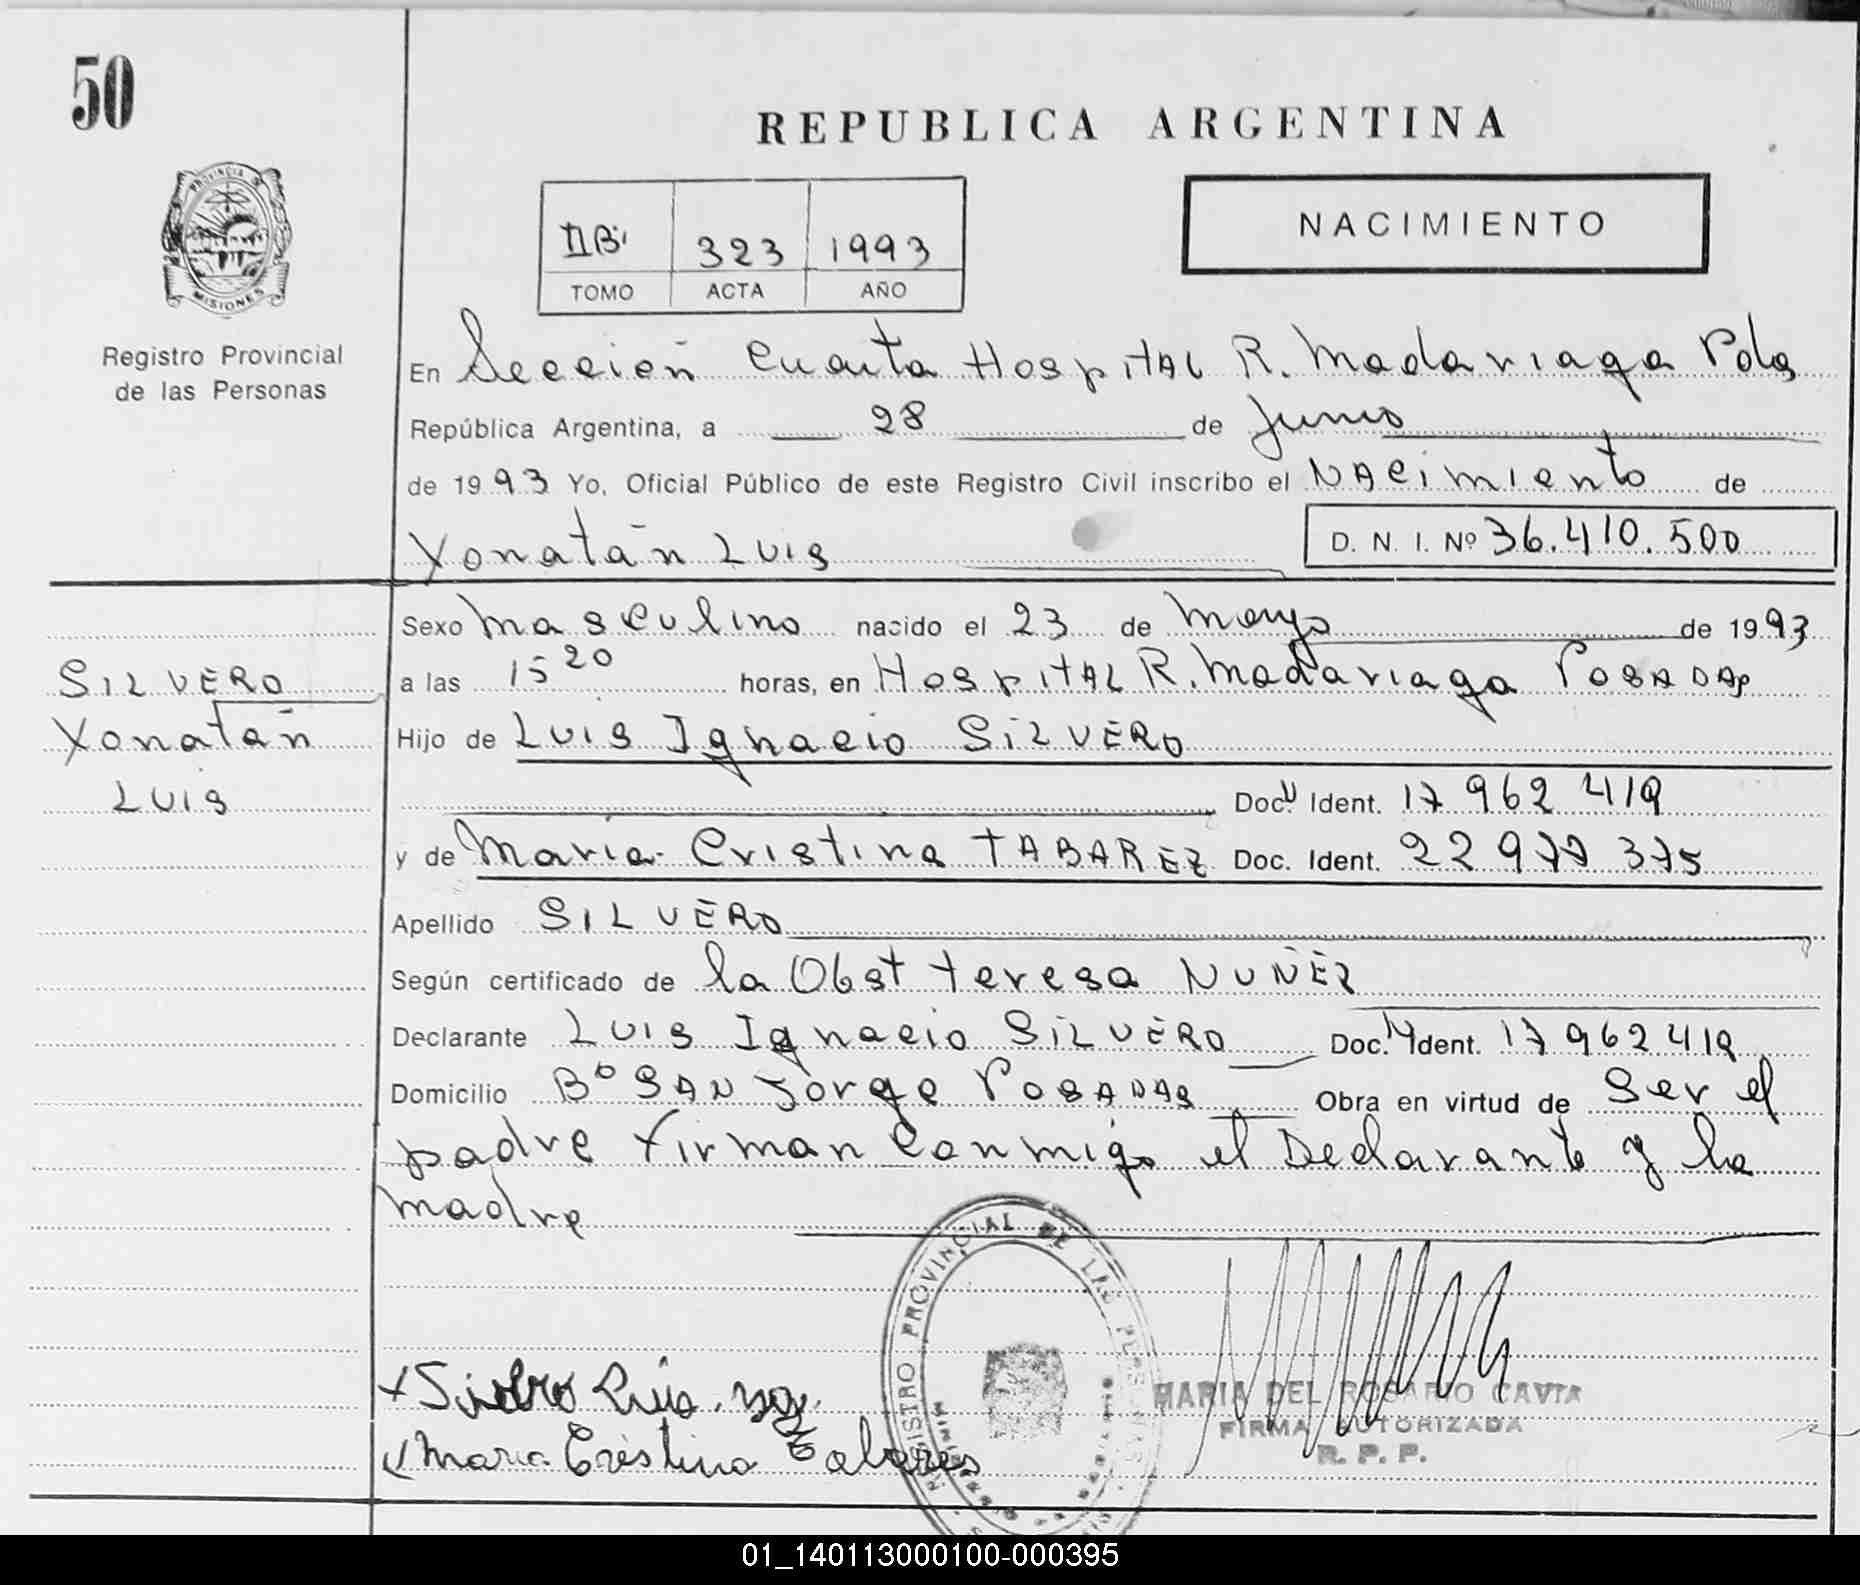 50
REPUBLICA ARGENTINA
PROVINCIA DE
MISIONES
Registro Provincial
de las Personas
IIBis 323 1993
TOMO ACTA AÑO
NACIMIENTO
En Sección Cuarta Hospital R. Madariaga Pdas
República Argentina, a 28 de Junio
de 1993 Yo, Oficial Público de este Registro Civil inscribo el NACimiento de
Yonatán Luis D. N. I. Nº 36.410.500
Sexo masculino nacido el 23 de Mayo de 1993
a las 15 20 horas, en Hospital R. Madariaga POSADAS
Hijo de Luis Ignacio SILVERO
Doc. Ident. 17 962 419
y de María Cristina TABAREZ Doc. Ident. 22 977 375
Apellido SILVERO
Según certificado de la Obst Teresa NUÑEZ
Declarante Luis Ignacio SILVERO Doc. Ident. 17 962 419
Domicilio Bº SAN Jorge POSADAS Obra en virtud de Ser el
padre Firman Conmigo el Declarante y la
madre
SILVERO
Yonatán
Luis
REGISTRO PROVINCIAL DE LAS PERSONAS
MARIA DEL ROSARIO CAVIA
FIRMA AUTORIZADA
R. P. P.
Maria Cristina Tabares
01_140113000100-000395